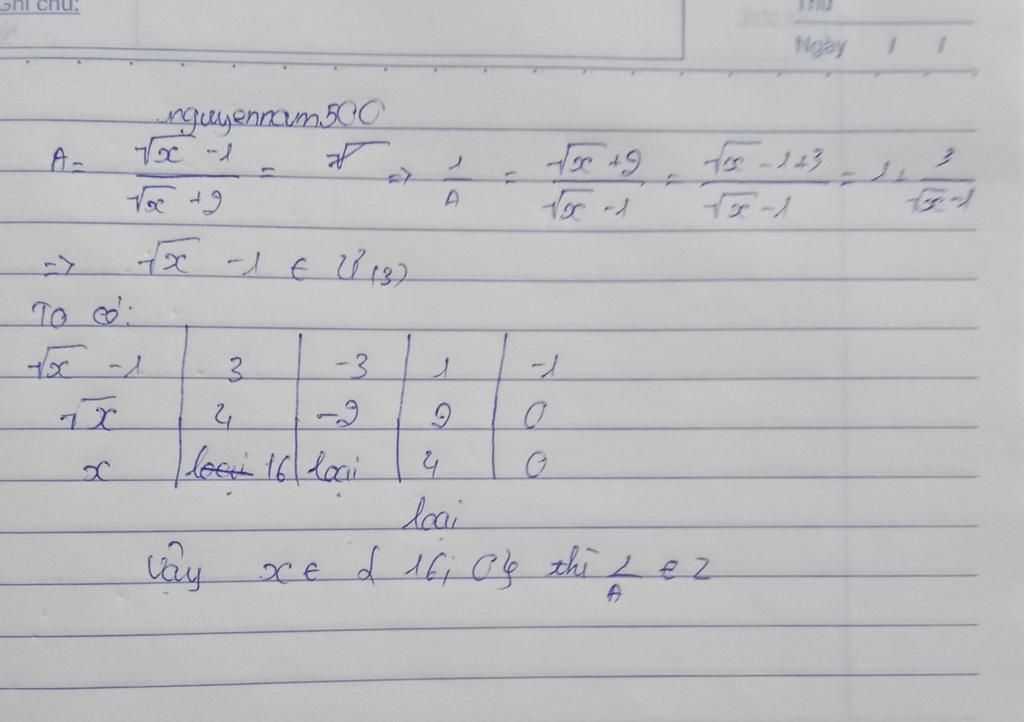 Ghi chú:
Thứ
Ngày / /
nguyennam500
A = \frac{\sqrt{x} - 1}{\sqrt{x} + 2} = => \frac{1}{A} = \frac{\sqrt{x} + 2}{\sqrt{x} - 1} = \frac{\sqrt{x} - 1 + 3}{\sqrt{x} - 1} = 1 + \frac{3}{\sqrt{x} - 1}
=> \sqrt{x} - 1 ∈ Ư(3)
Ta có:
\sqrt{x} - 1 | 3 | -3 | 1 | -1
\sqrt{x} | 4 | -2 | 2 | 0
x | loại 16 | loại | 4 | 0
loại
Vậy x ∈ { 16; 0 } thì \frac{1}{A} ∈ Z